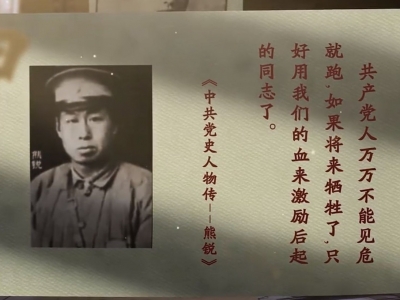 共产党人万万不能见危
就跑,如果将来牺牲了,只
好用我们的血来激励后起
的同志了。
《中共党史人物传——熊锐》
熊锐